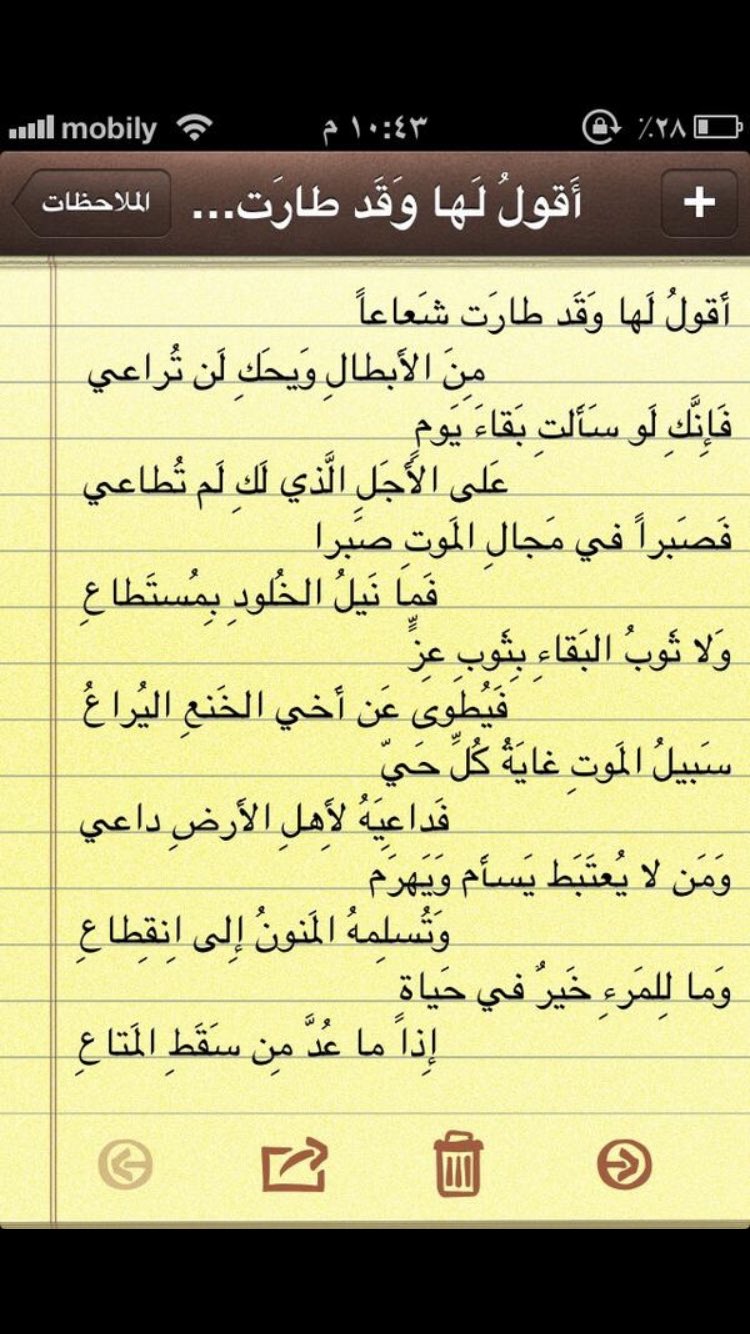 mobily ١٠:٤٣ م ٪٢٨
الملاحظات أَقولُ لَها وَقَد طارَت... +
أَقولُ لَها وَقَد طارَت شَعاعاً
مِنَ الأَبطالِ وَيحَكِ لَن تُراعي
فَإِنَّكِ لَو سَأَلتِ بَقاءَ يَومٍ
عَلى الأَجَلِ الَّذي لَكِ لَم تُطاعي
فَصَبراً في مَجالِ المَوتِ صَبرا
فَما نَيلُ الخُلودِ بِمُستَطاعِ
وَلا ثَوبُ البَقاءِ بِثَوبِ عِزٍّ
فَيُطوى عَن أخي الخَنعِ اليُراعُ
سَبيلُ المَوتِ غايَةُ كُلِّ حَيّ
فَداعِيَهُ لأَهِلِ الأَرضِ داعي
وَمَن لا يُعتَبَط يَسأم وَيَهرَم
وَتُسلِمهُ المَنونُ إِلى اِنقِطاعِ
وَما لِلمَرءِ خَيرٌ في حَياة
إِذاً ما عُدَّ مِن سَقَطِ المَتاعِ